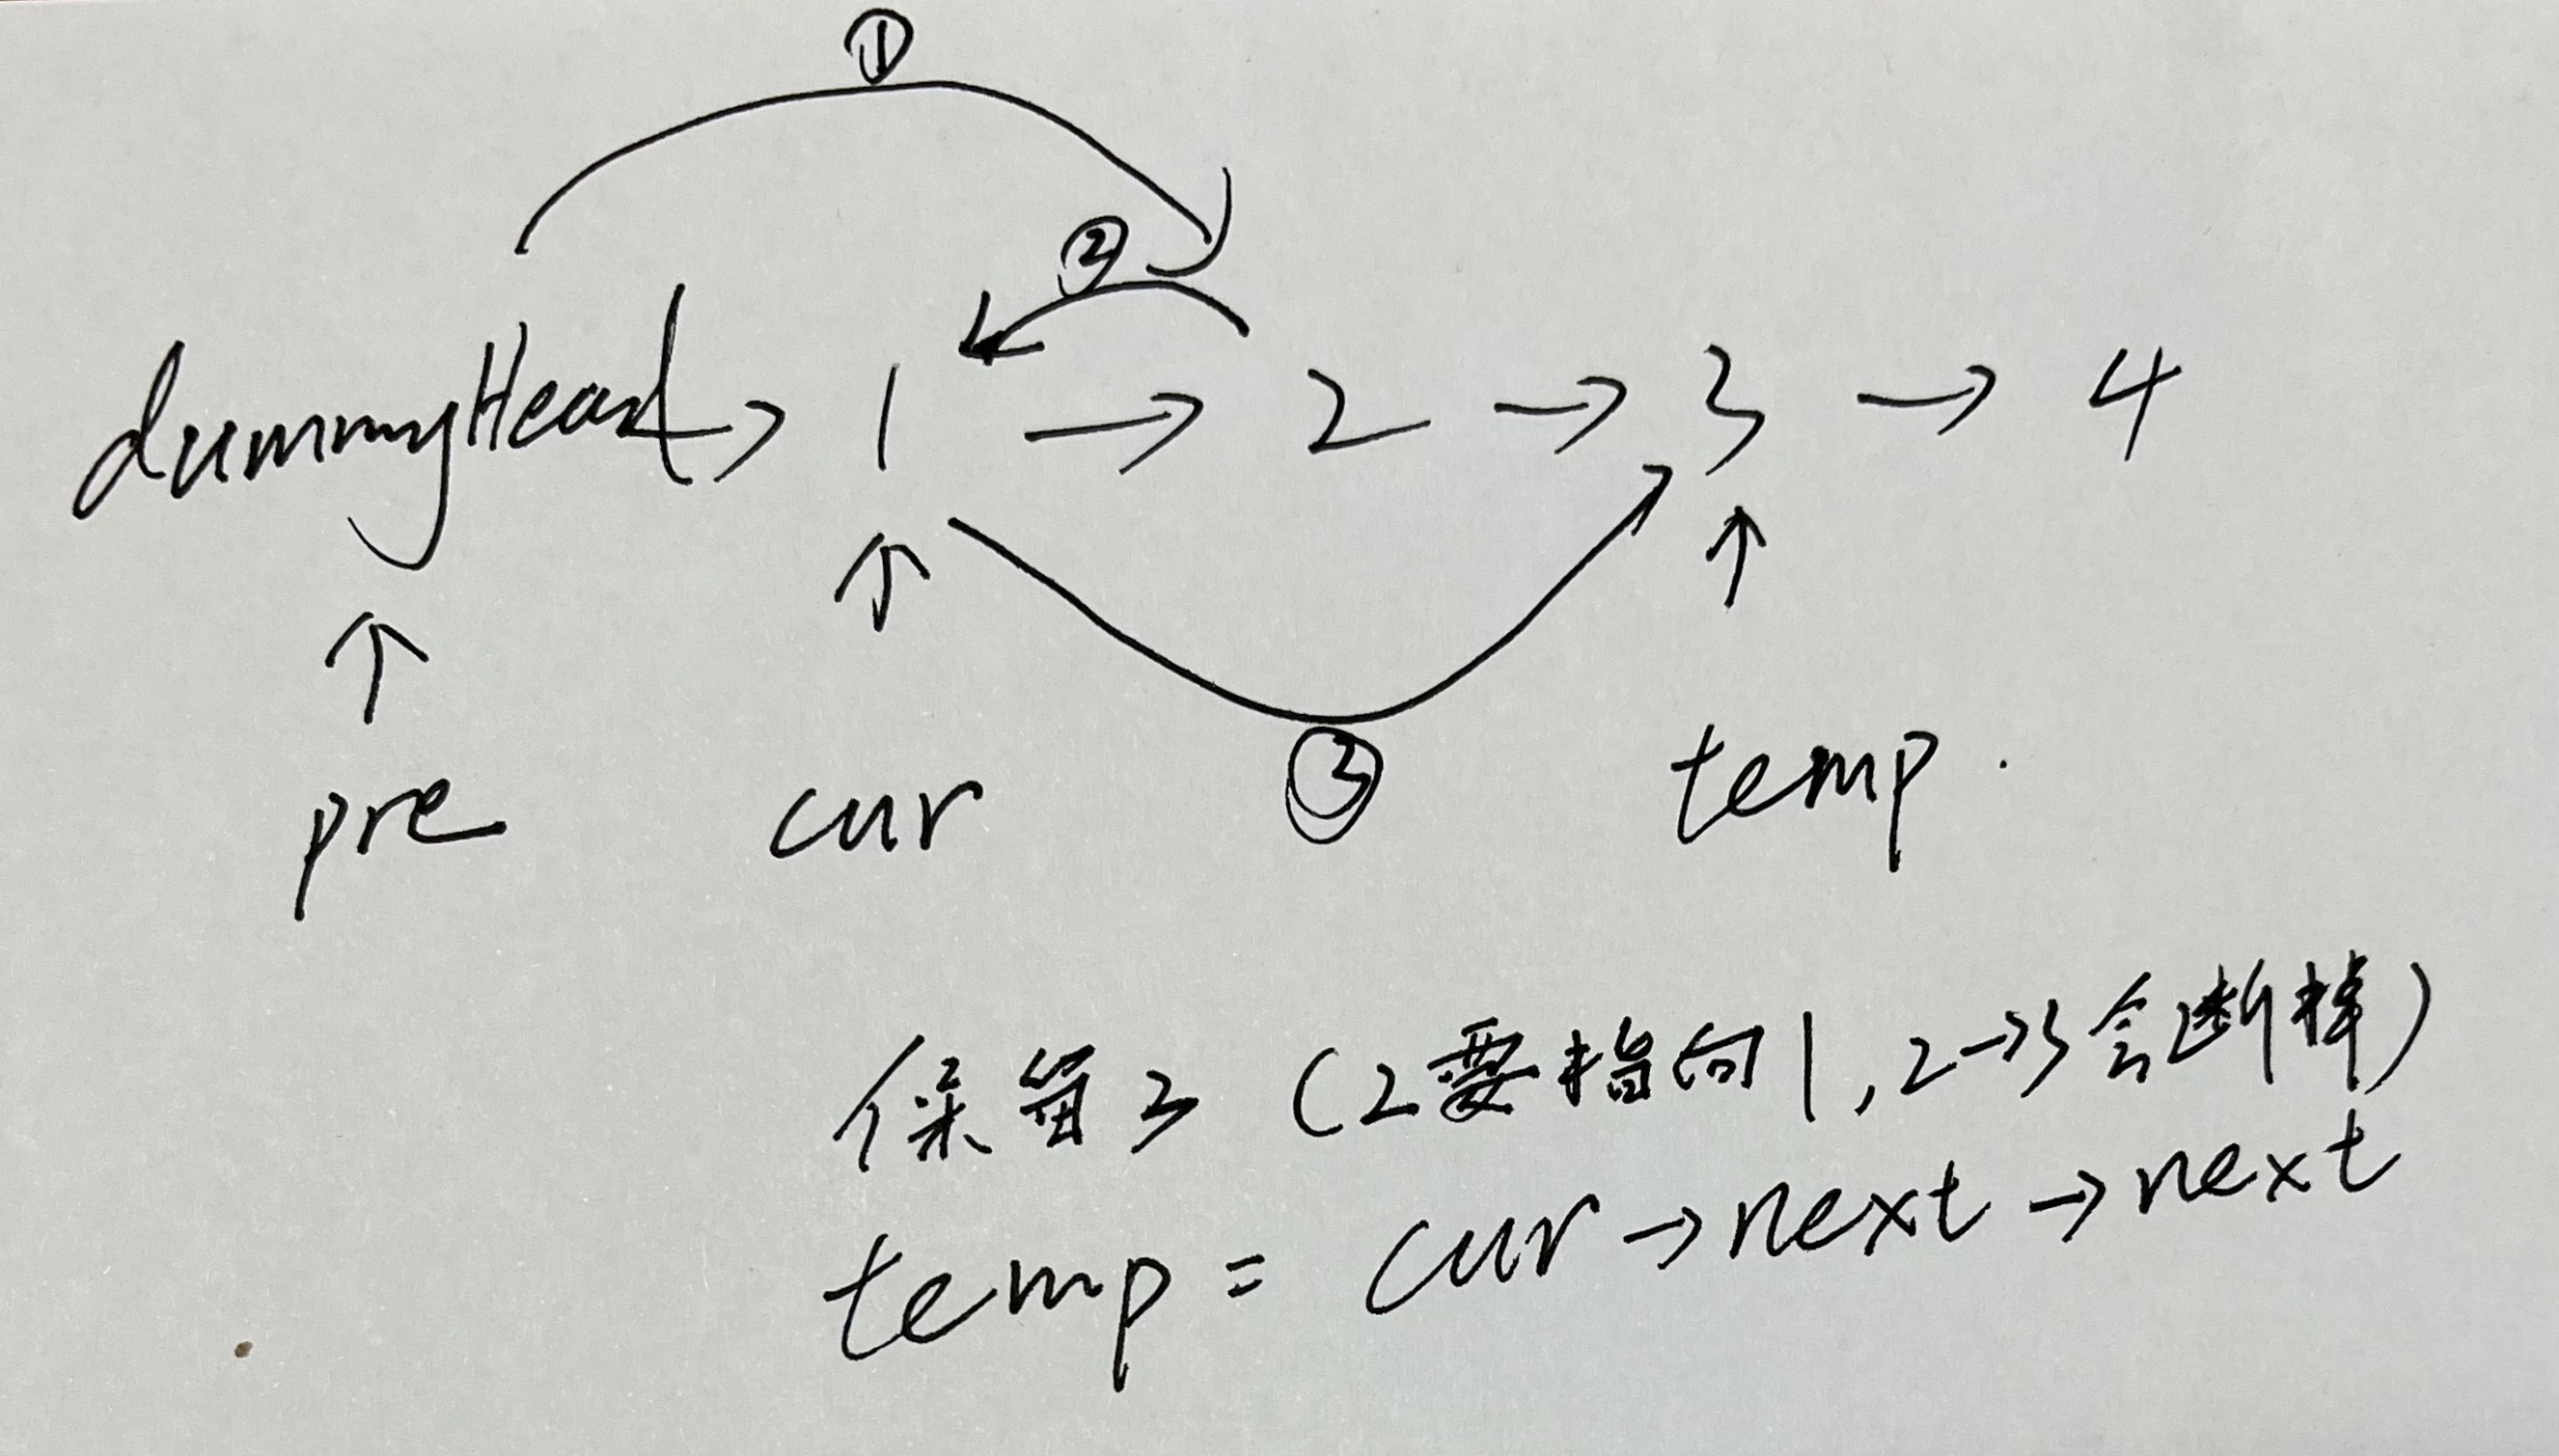 ①
②
dummyHead → 1 → 2 → 3 → 4
↑ ↑ ↑
pre cur ③ temp.
保留3 (2要指向1,2→3会断掉)
temp = cur→next→next